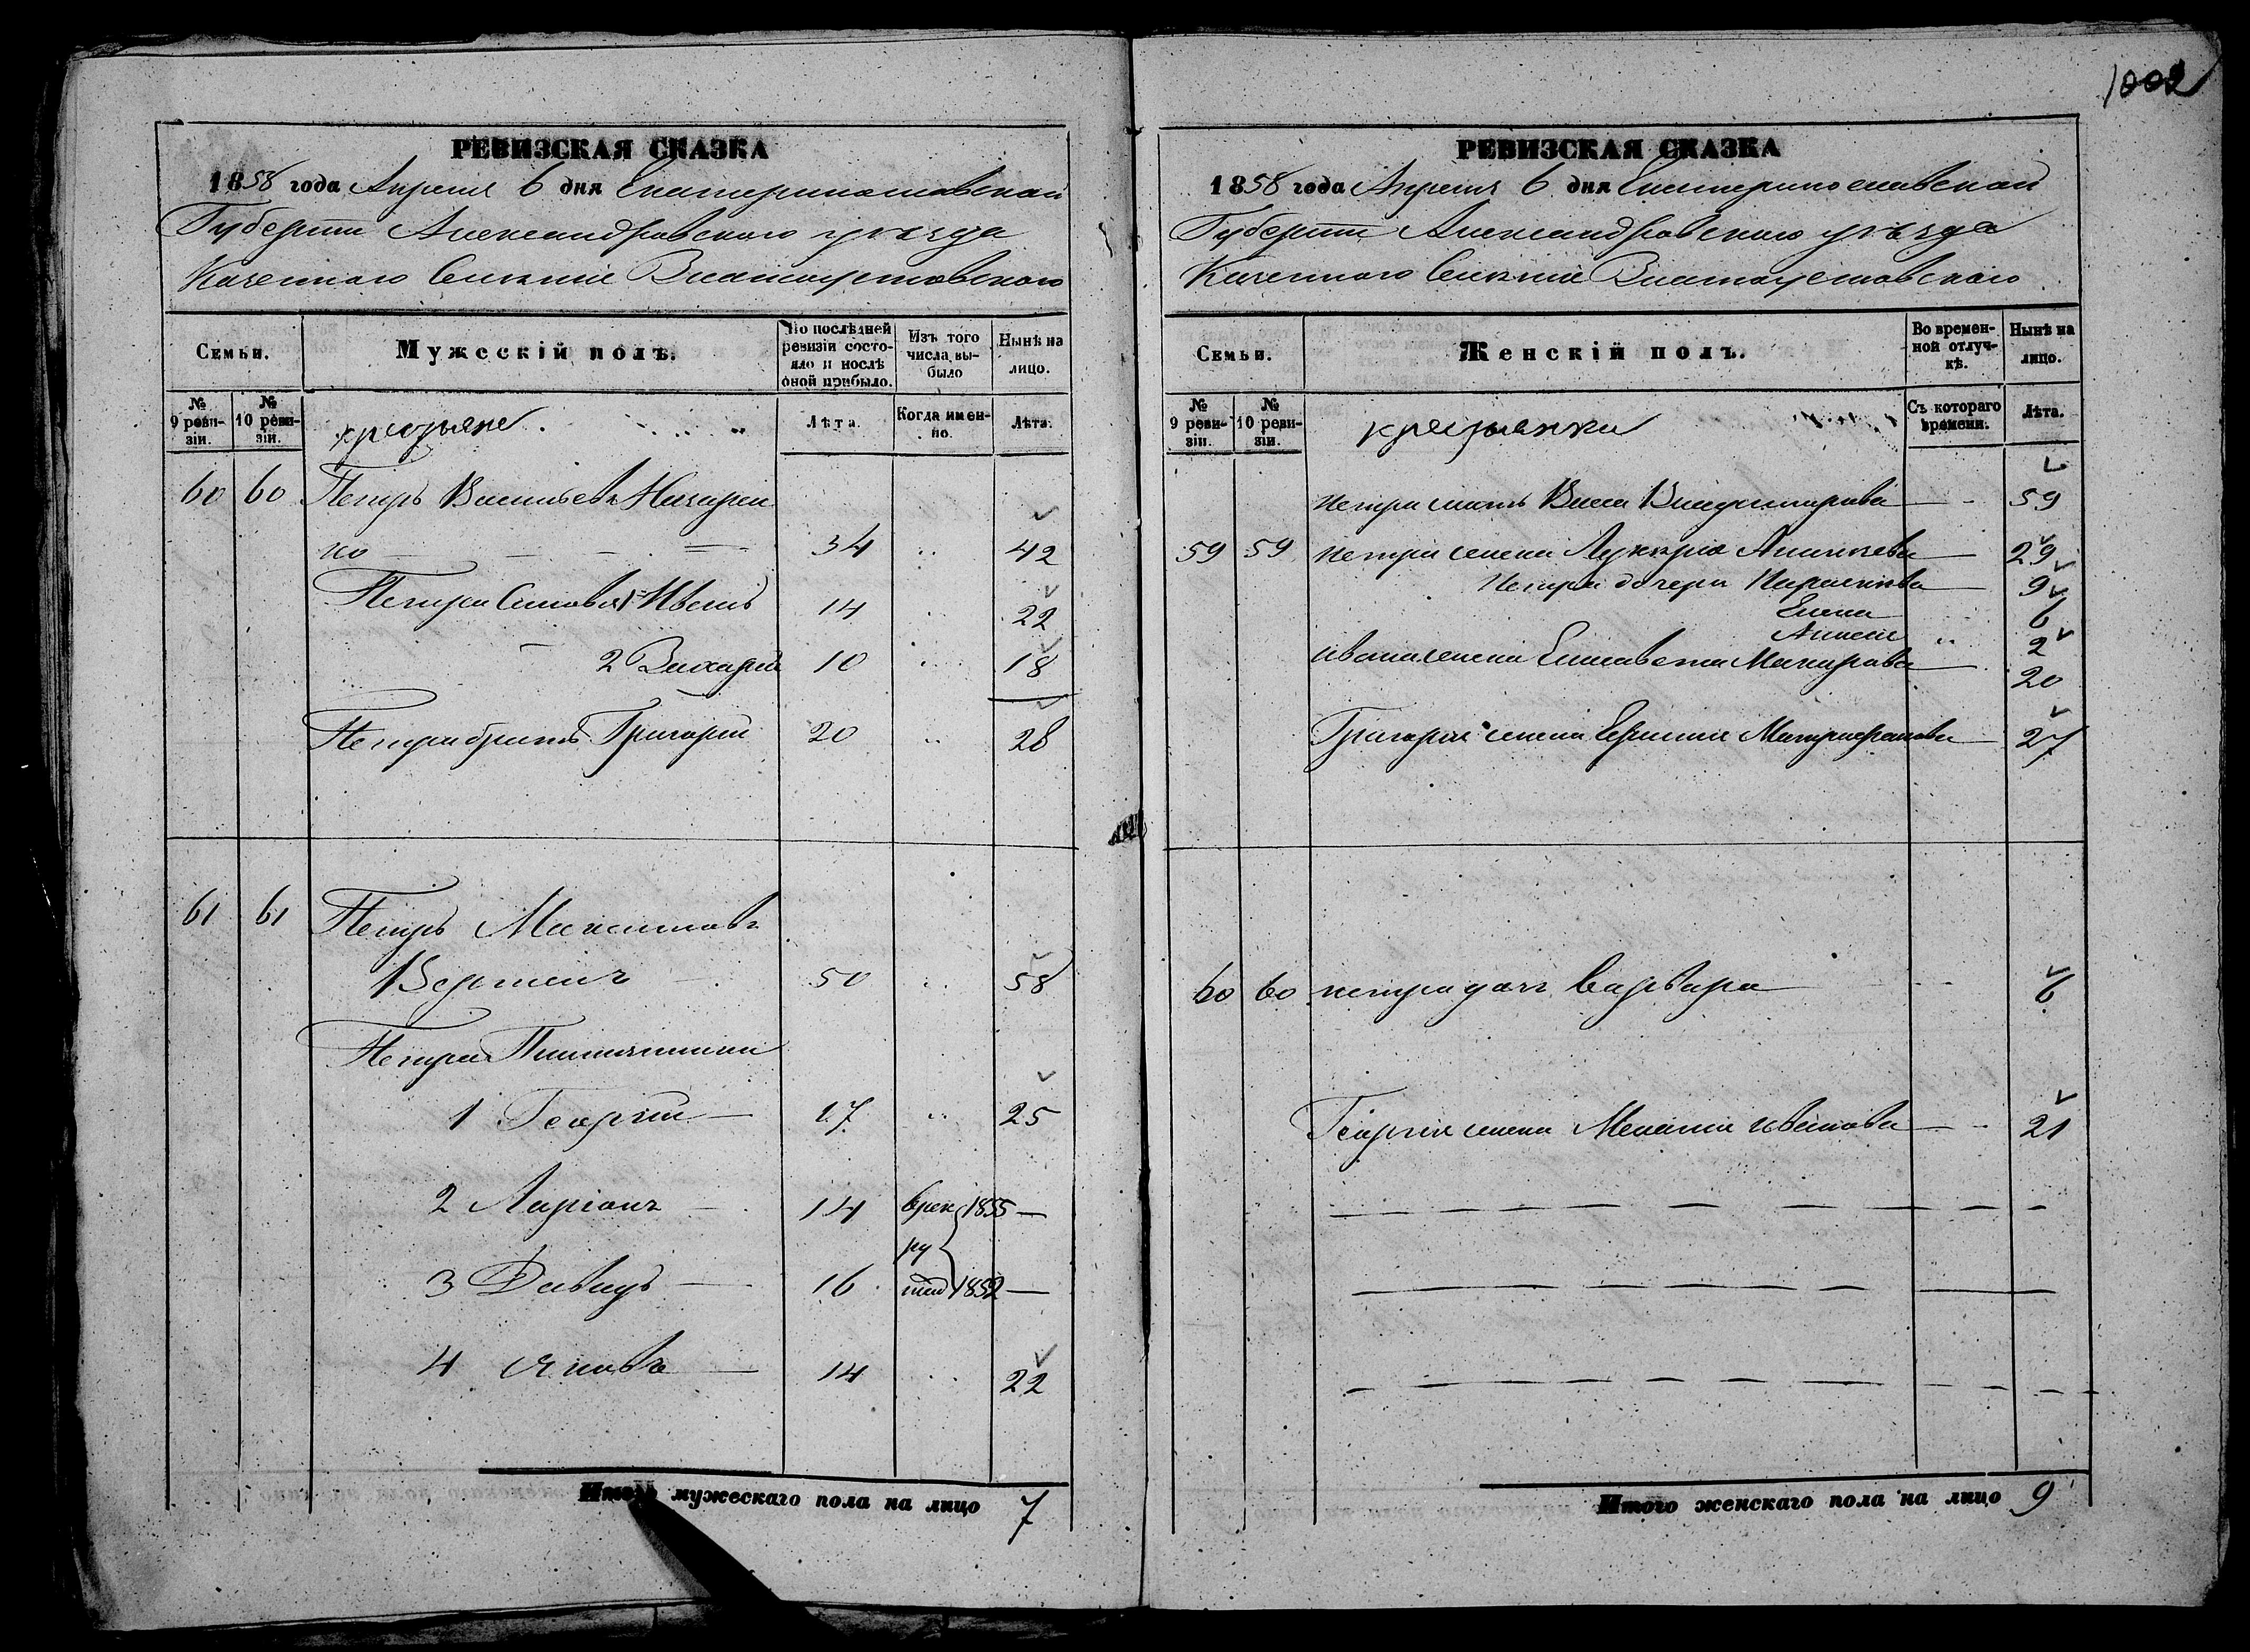 1002
РЕВИЗСКАЯ СКАЗКА
1858 года Апреля 6 дня Екатеринославской
Губернiи Александровского уѣзда
Казенного Селенiя Златоустовского
Семьи.
Мужескiй полъ.
По послѣдней ревизiи состояло и послѣ оной прибыло.
Изъ того числа выбыло
Нынѣ на лицо.
№ 9 ревизiи.
№ 10 ревизiи.
крестьяне
Лѣта.
Когда именно.
Лѣта.
60 60 Петръ Васильевъ
но 34 42
Петра Сыновья 1 Иванъ 14 22
2 Захарiй 10 18
Петра братъ Григорiй 20 28
61 61 Петръ Максимовъ
50 58
Петра
1 Георгiй 17 25
2 Ларiонъ 14 в рек 1855 —
ру
3 Давидъ 16 1852 —
4 Яковъ 14 22
Итого мужескаго пола на лицо 7
РЕВИЗСКАЯ СКАЗКА
1858 года Апреля 6 дня Екатеринославской
Губернiи Александровского уѣзда
Казенного Селенiя Златоустовского
Семьи.
Женскiй полъ.
Во временной отлучкѣ.
Нынѣ на лицо.
№ 9 ревизiи.
№ 10 ревизiи.
крестьянки
Съ котораго времени.
Лѣта.
Петра мать 59
59 59 Петра жена 29
Петра дочери 9
Елена 6
2
Ивана жена Елисавета Макарова 20
Григорiя жена Митрофанова 27
60 60 Петра доч Варвара 6
Георгiя жена Меланiя Иванова 21
Итого женскаго пола на лицо 9